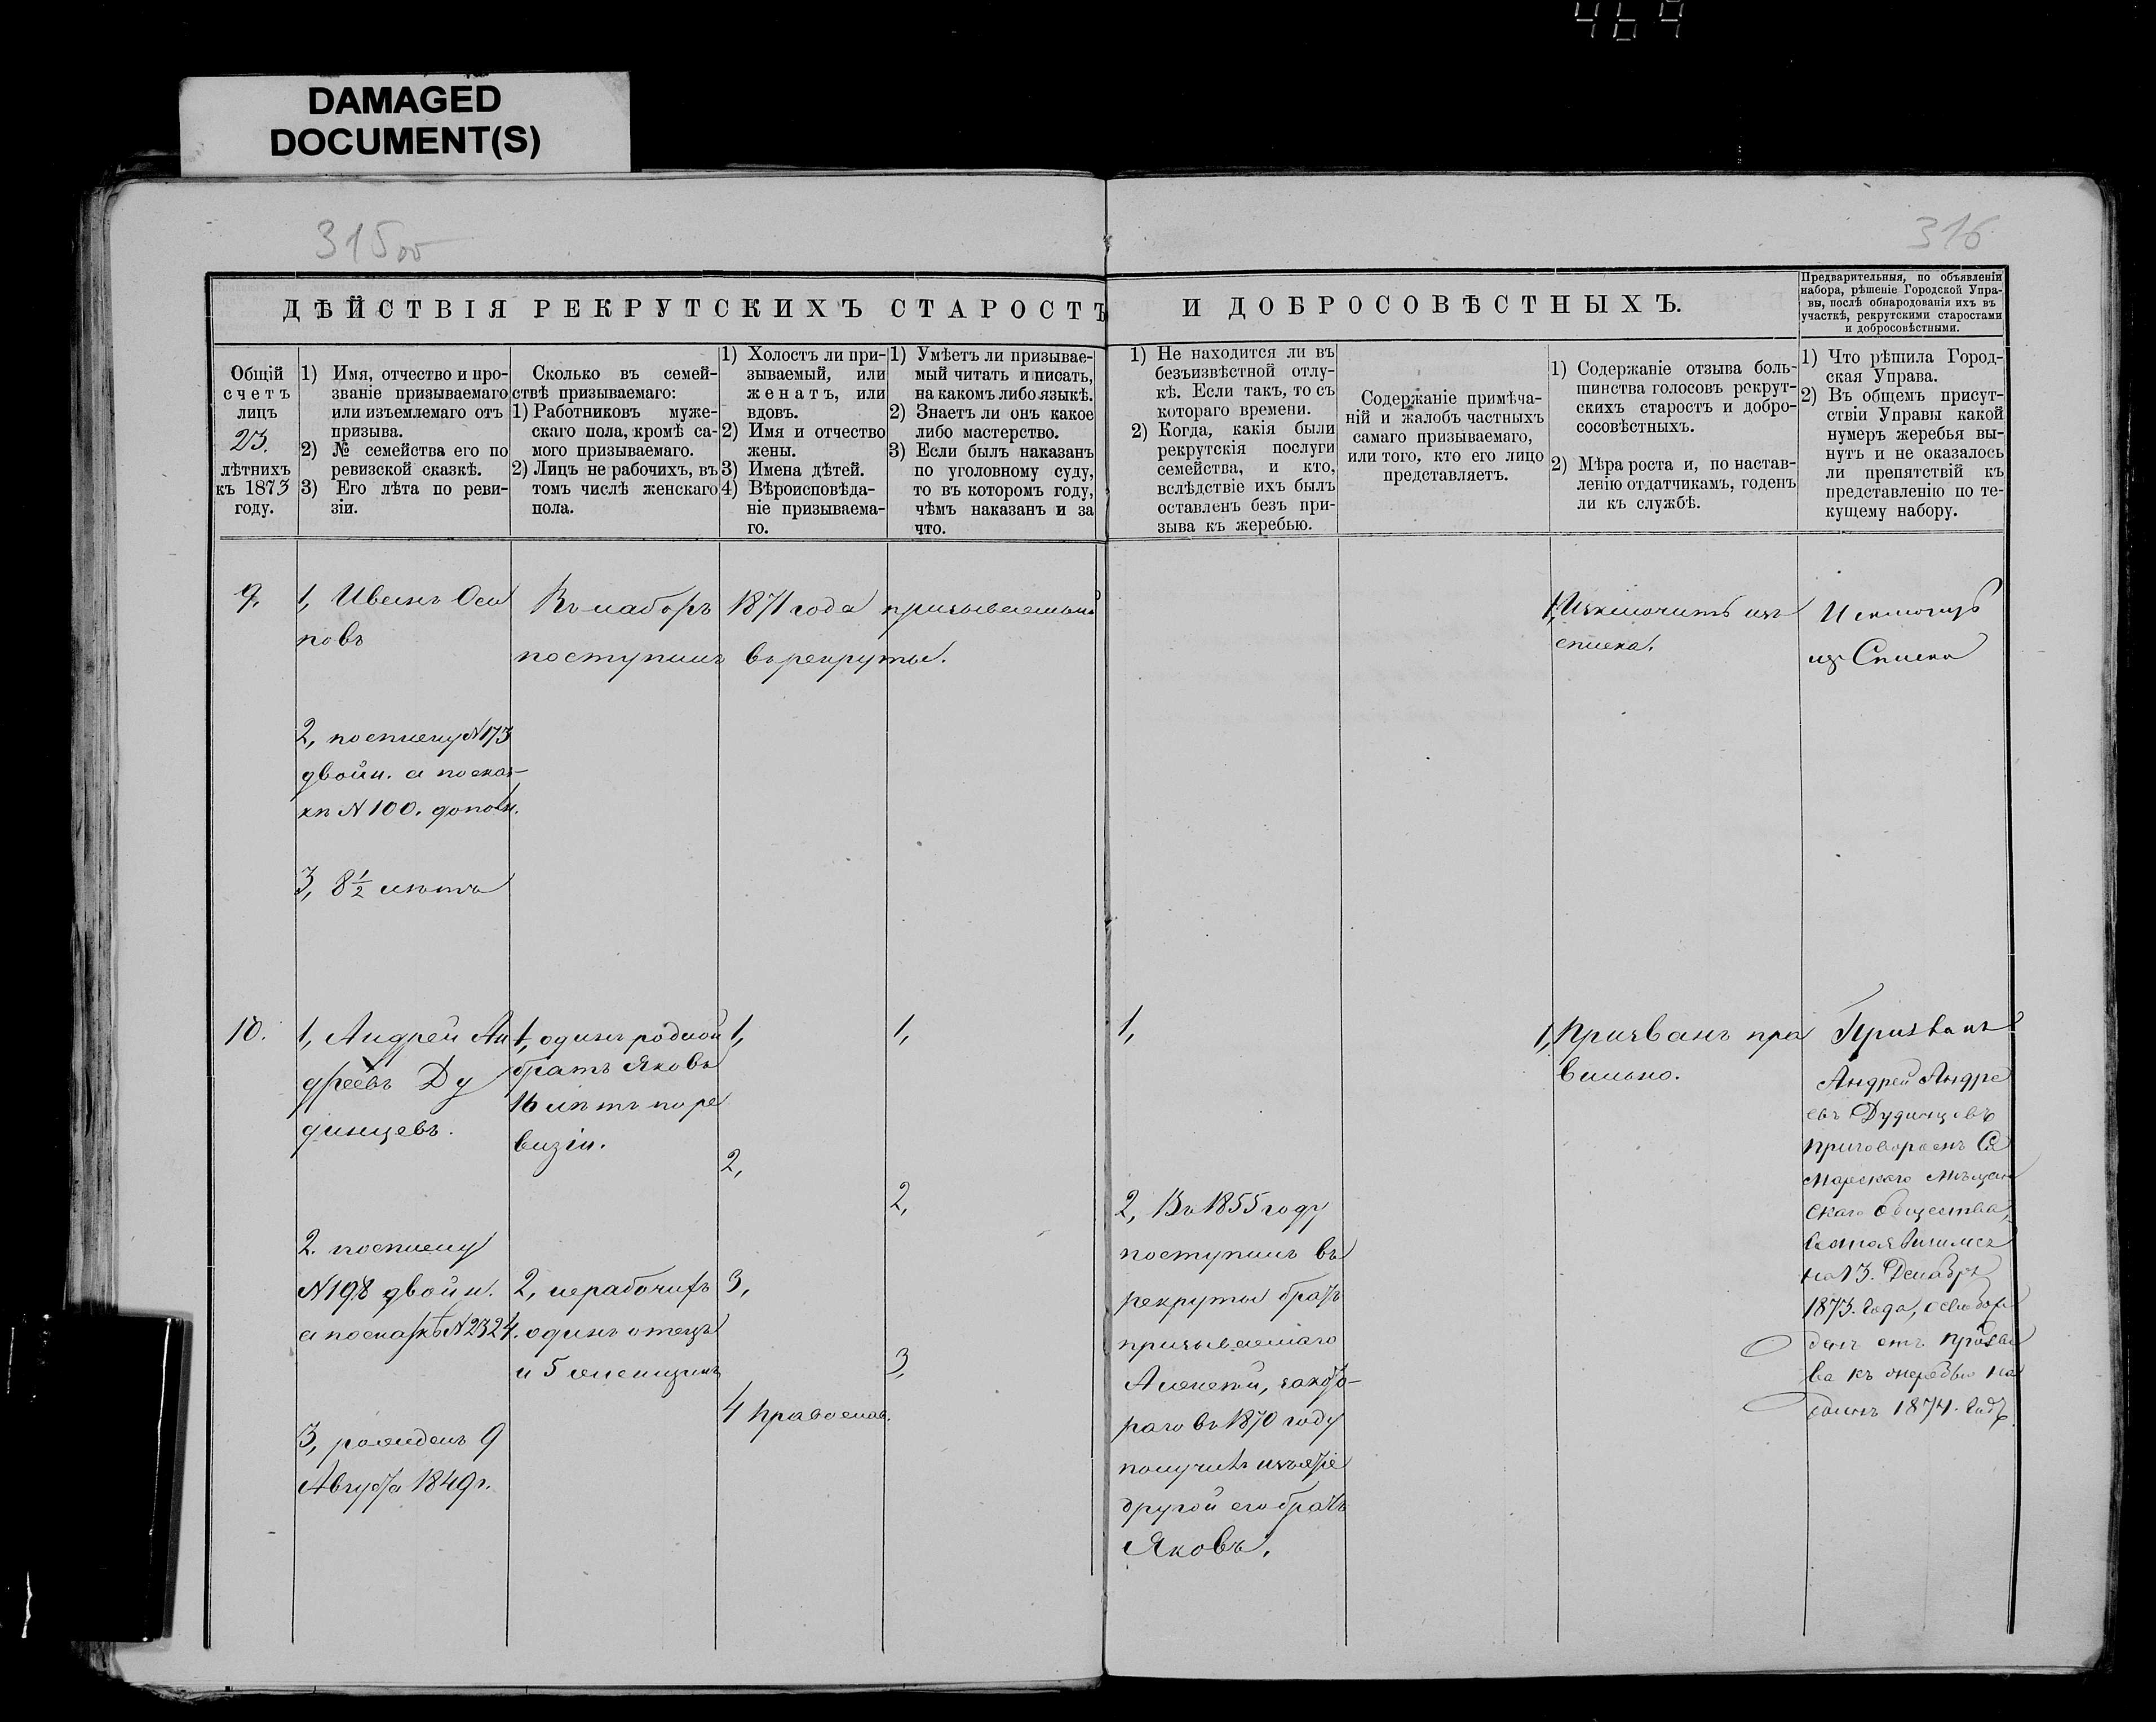 469
DAMAGED
DOCUMENT(S)
315об
316
ДѢЙСТВІЯ РЕКРУТСКИХЪ СТАРОСТЪ
И ДОБРОСОВѢСТНЫХЪ.
Предварительныя, по объявленіи
набора, рѣшеніе Городской Упра-
вы, послѣ обнародованія ихъ въ
участкѣ, рекрутскими старостами
и добросовѣстными.
Общій
счетъ
лицъ
23.
лѣтнихъ
къ 1873
году.
1) Имя, отчество и про-
званіе призываемаго
или изъемлемаго отъ
призыва.
2) № семейства его по
ревизской сказкѣ.
3) Его лѣта по реви-
зіи.
Сколько въ семей-
ствѣ призываемаго:
1) Работниковъ муже-
скаго пола, кромѣ са-
мого призываемаго.
2) Лицъ не рабочихъ, въ
томъ числѣ женскаго
пола.
1) Холостъ ли при-
зываемый, или
женатъ, или
вдовъ.
2) Имя и отчество
жены.
3) Имена дѣтей.
4) Вѣроисповѣда-
ніе призываема-
го.
1) Умѣетъ ли призывае-
мый читать и писать,
на какомъ либо языкѣ.
2) Знаетъ ли онъ какое
либо мастерство.
3) Если былъ наказанъ
по уголовному суду,
то въ которомъ году,
чѣмъ наказанъ и за
что.
1) Не находится ли въ
безъизвѣстной отлу-
кѣ. Если такъ, то съ
котораго времени.
2) Когда, какія были
рекрутскія послуги
семейства, и кто,
вслѣдствіе ихъ былъ
оставленъ безъ при-
зыва къ жеребью.
Содержаніе примѣча-
ній и жалобъ частныхъ
самаго призываемаго,
или того, кто его лицо
представляетъ.
1) Содержаніе отзыва боль-
шинства голосовъ рекрут-
скихъ старостъ и добро-
совѣстныхъ.
2) Мѣра роста и, по настав-
ленію отдатчикамъ, годенъ
ли къ службѣ.
1) Что рѣшила Город-
ская Управа.
2) Въ общемъ присут-
ствіи Управы какой
нумеръ жеребья вы-
нутъ и не оказалось
ли препятствій къ
представленію по те-
кущему набору.
9,
1, Иванъ Оси
повъ
2, по списку N 173
двойн. а по сказ-
кѣ N 100. дополн.
3, 8½ лѣтъ
Въ наборъ 1871 года призываемый
поступилъ въ рекруты.
1, Изключить изъ
списка.
Исключить
изъ Списка
10.
1, Андрей Ан
дреевъ Ду
динцевъ.
2. по списку
N 198 двойн.
а по сказкѣ N 2324.
3, рожденъ 9
Августа 1849 г.
1, одинъ родной
братъ Яковъ
16 лѣтъ по ре
визіи.
2, нерабочихъ
одинъ отецъ
и 5 женщинъ
1,
2,
3,
4 Православ.
1,
2,
3,
1,
2, Въ 1855 году
поступилъ въ
рекруты братъ
призываемаго
Алексѣй, за кото-
раго въ 1870 году
получилъ изъятіе
другой его братъ
Яковъ.
1, Призванъ пра
вильно.
Призванъ
Андрей Андре
евъ Дудинцевъ
приговоромъ Са
марскаго Мѣщан
скаго Общества,
состоявшимся
на 13. Декабря
1873. Года, освобож
денъ отъ призы
ва къ жеребью на
одинъ 1874. Годъ.